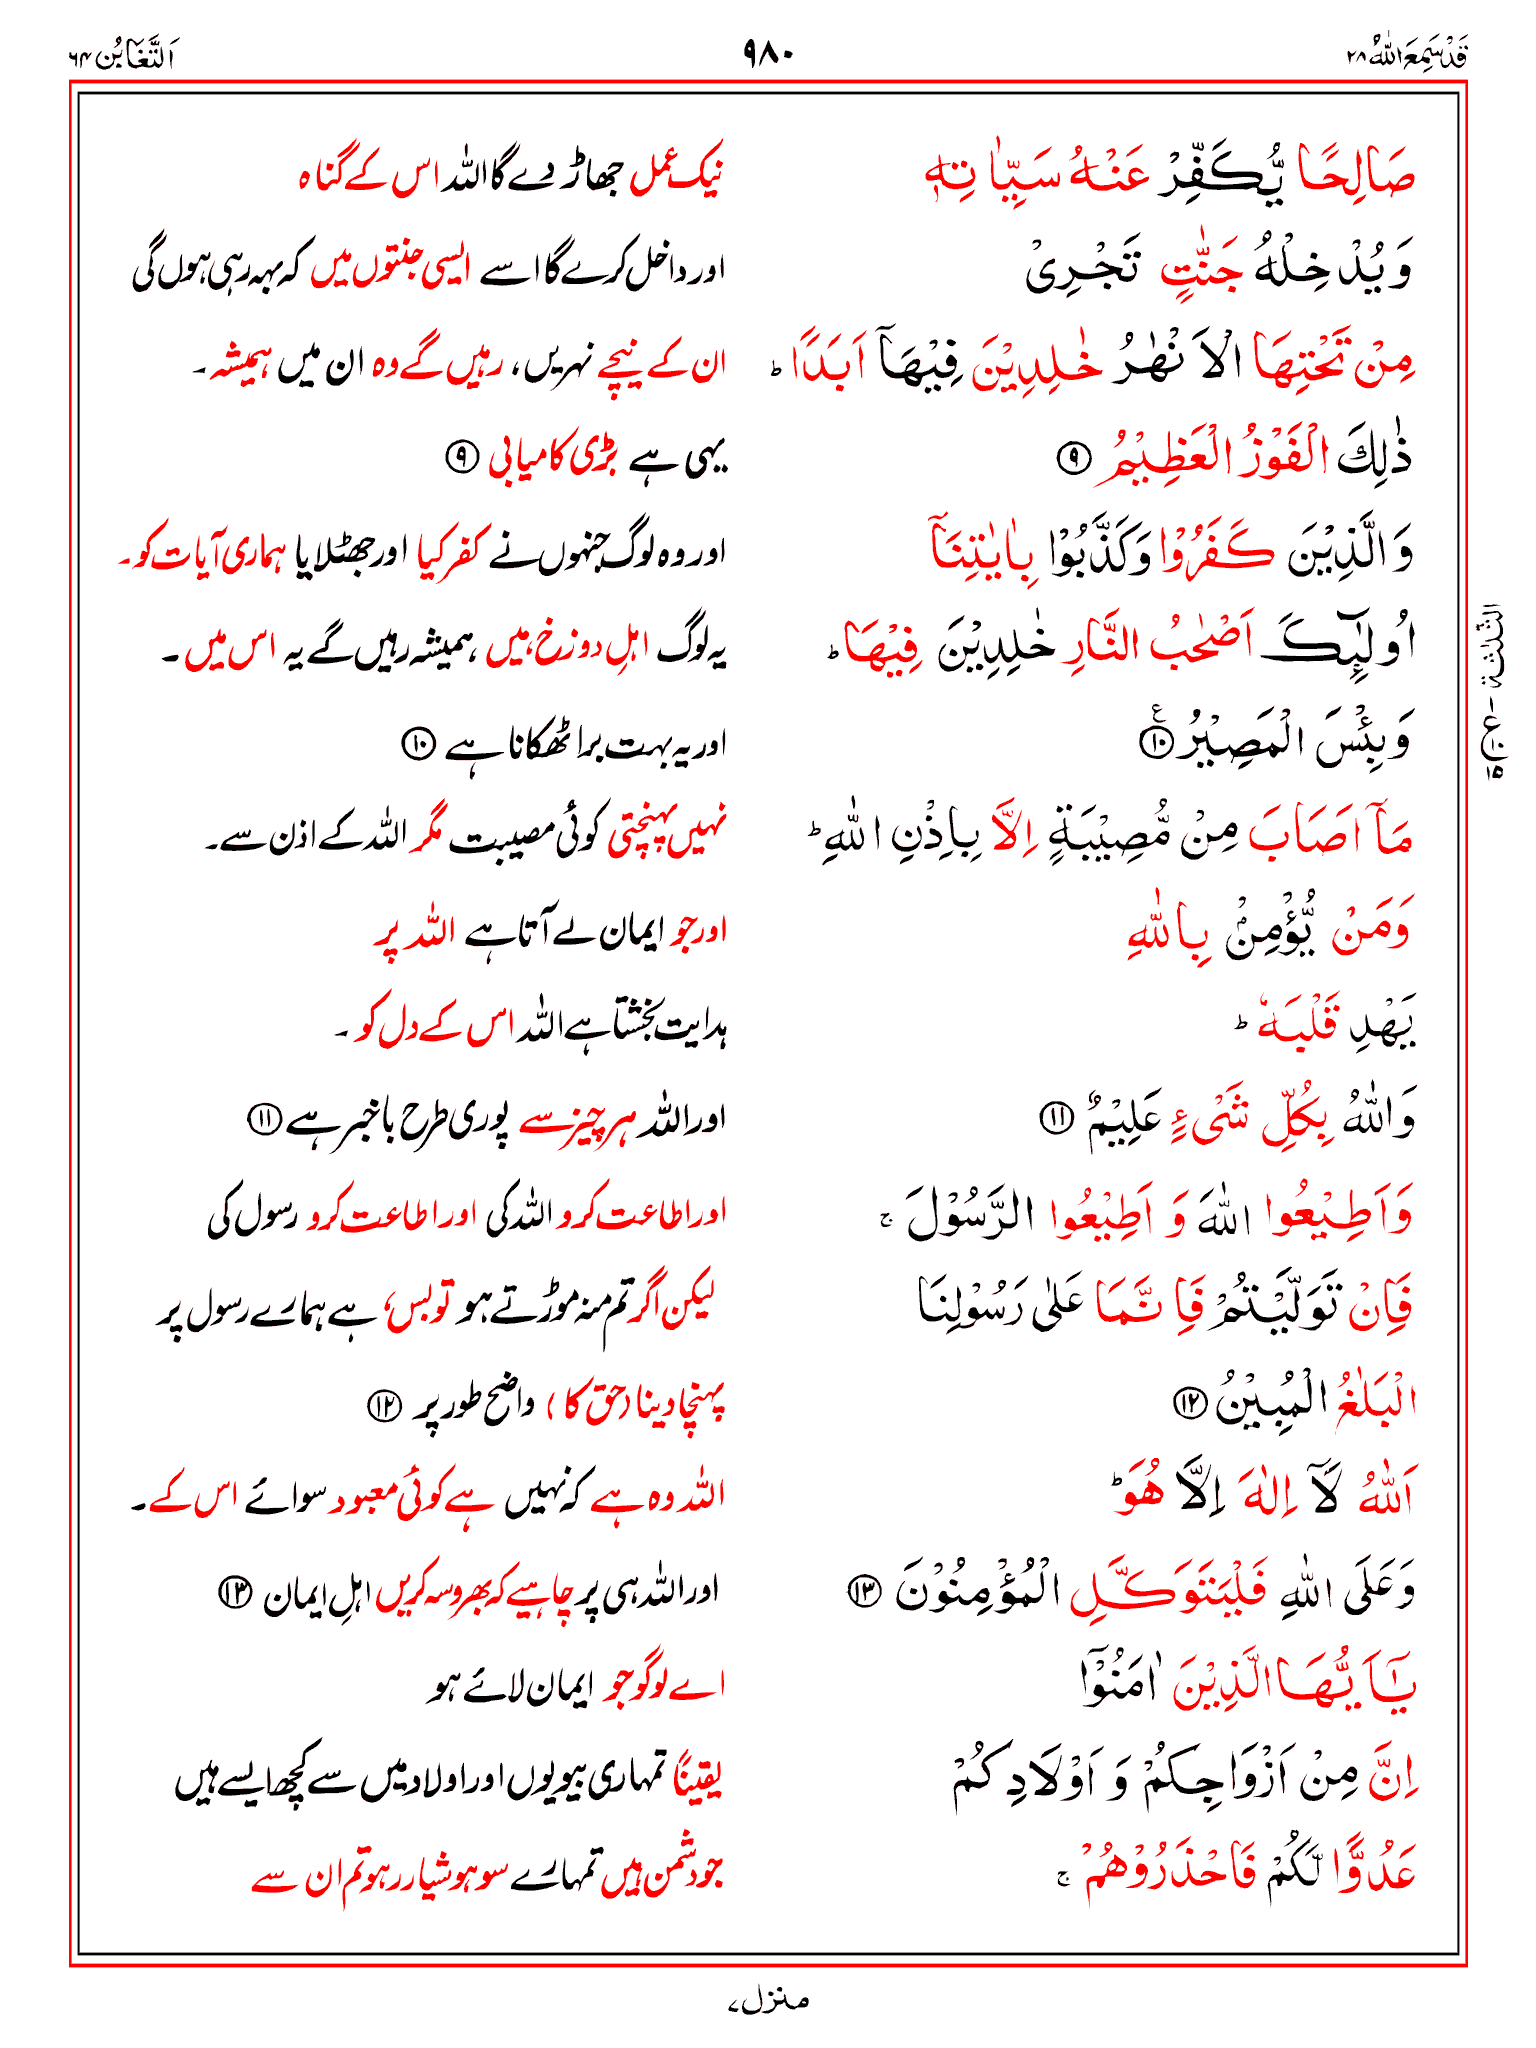 قَدْسَمِعَ اللّٰهُ ۲۸
۹۸۰
اَلتَّغَابُن ۶۴
صَالِحًا يُّكَفِّرْ عَنْهُ سَيِّاٰتِهٖ
نیک عمل جھاڑ دے گا اللہ اس کے گناہ
وَيُدْخِلْهُ جَنّٰتٍ تَجْرِىْ
اور داخل کرے گا اسے ایسی جنتوں میں کہ بہہ رہی ہوں گی
مِنْ تَحْتِهَا الْاَنْهٰرُ خٰلِدِيْنَ فِيْهَاۤ اَبَدًا ؕ
ان کے نیچے نہریں، رہیں گے وہ ان میں ہمیشہ۔
ذٰلِكَ الْفَوْزُ الْعَظِيْمُ ۹
یہی ہے بڑی کامیابی ۹
وَالَّذِيْنَ كَفَرُوْا وَكَذَّبُوْا بِاٰيٰتِنَاۤ
اور وہ لوگ جنہوں نے کفر کیا اور جھٹلایا ہماری آیات کو۔
اُولٰٓئِكَ اَصْحٰبُ النَّارِ خٰلِدِيْنَ فِيْهَا ؕ
یہ لوگ اہلِ دوزخ ہیں ہمیشہ رہیں گے یہ اس میں۔
وَبِئْسَ الْمَصِيْرُ ۱۰ ع
اور یہ بہت برا ٹھکانا ہے ۱۰
مَاۤ اَصَابَ مِنْ مُّصِيْبَةٍ اِلَّا بِاِذْنِ اللّٰهِ ؕ
نہیں پہنچتی کوئی مصیبت مگر اللہ کے اذن سے۔
وَمَنْ يُّؤْمِنْۢ بِاللّٰهِ
اور جو ایمان لے آتا ہے اللہ پر
يَهْدِ قَلْبَهٗ ؕ
ہدایت بخشتا ہے اللہ اس کے دل کو۔
وَاللّٰهُ بِكُلِّ شَىْءٍ عَلِيْمٌ ۱۱
اور اللہ ہر چیز سے پوری طرح باخبر ہے ۱۱
وَاَطِيْعُوا اللّٰهَ وَ اَطِيْعُوا الرَّسُوْلَ ۚ
اور اطاعت کرو اللہ کی اور اطاعت کرو رسول کی
فَاِنْ تَوَلَّيْتُمْ فَاِنَّمَا عَلٰى رَسُوْلِنَا
لیکن اگر تم منہ موڑتے ہو تو بس، ہے ہمارے رسول پر
الْبَلٰغُ الْمُبِيْنُ ۱۲
پہنچا دینا (حق کا) واضح طور پر ۱۲
اَللّٰهُ لَاۤ اِلٰهَ اِلَّا هُوَ ؕ
اللہ وہ ہے کہ نہیں ہے کوئی معبود سوائے اس کے۔
وَعَلَى اللّٰهِ فَلْيَتَوَكَّلِ الْمُؤْمِنُوْنَ ۱۳
اور اللہ ہی پر چاہیے کہ بھروسہ کریں اہلِ ایمان ۱۳
يٰۤاَيُّهَا الَّذِيْنَ اٰمَنُوْۤا
اے لوگو جو ایمان لائے ہو
اِنَّ مِنْ اَزْوَاجِكُمْ وَ اَوْلَادِكُمْ
یقیناً تمہاری بیویوں اور اولاد میں سے کچھ ایسے ہیں
عَدُوًّا لَّكُمْ فَاحْذَرُوْهُمْ ۚ
جو دشمن ہیں تمہارے سو ہوشیار رہو تم ان سے
الثلٰثة
ع
۱۰
۱۵
منزل ۷